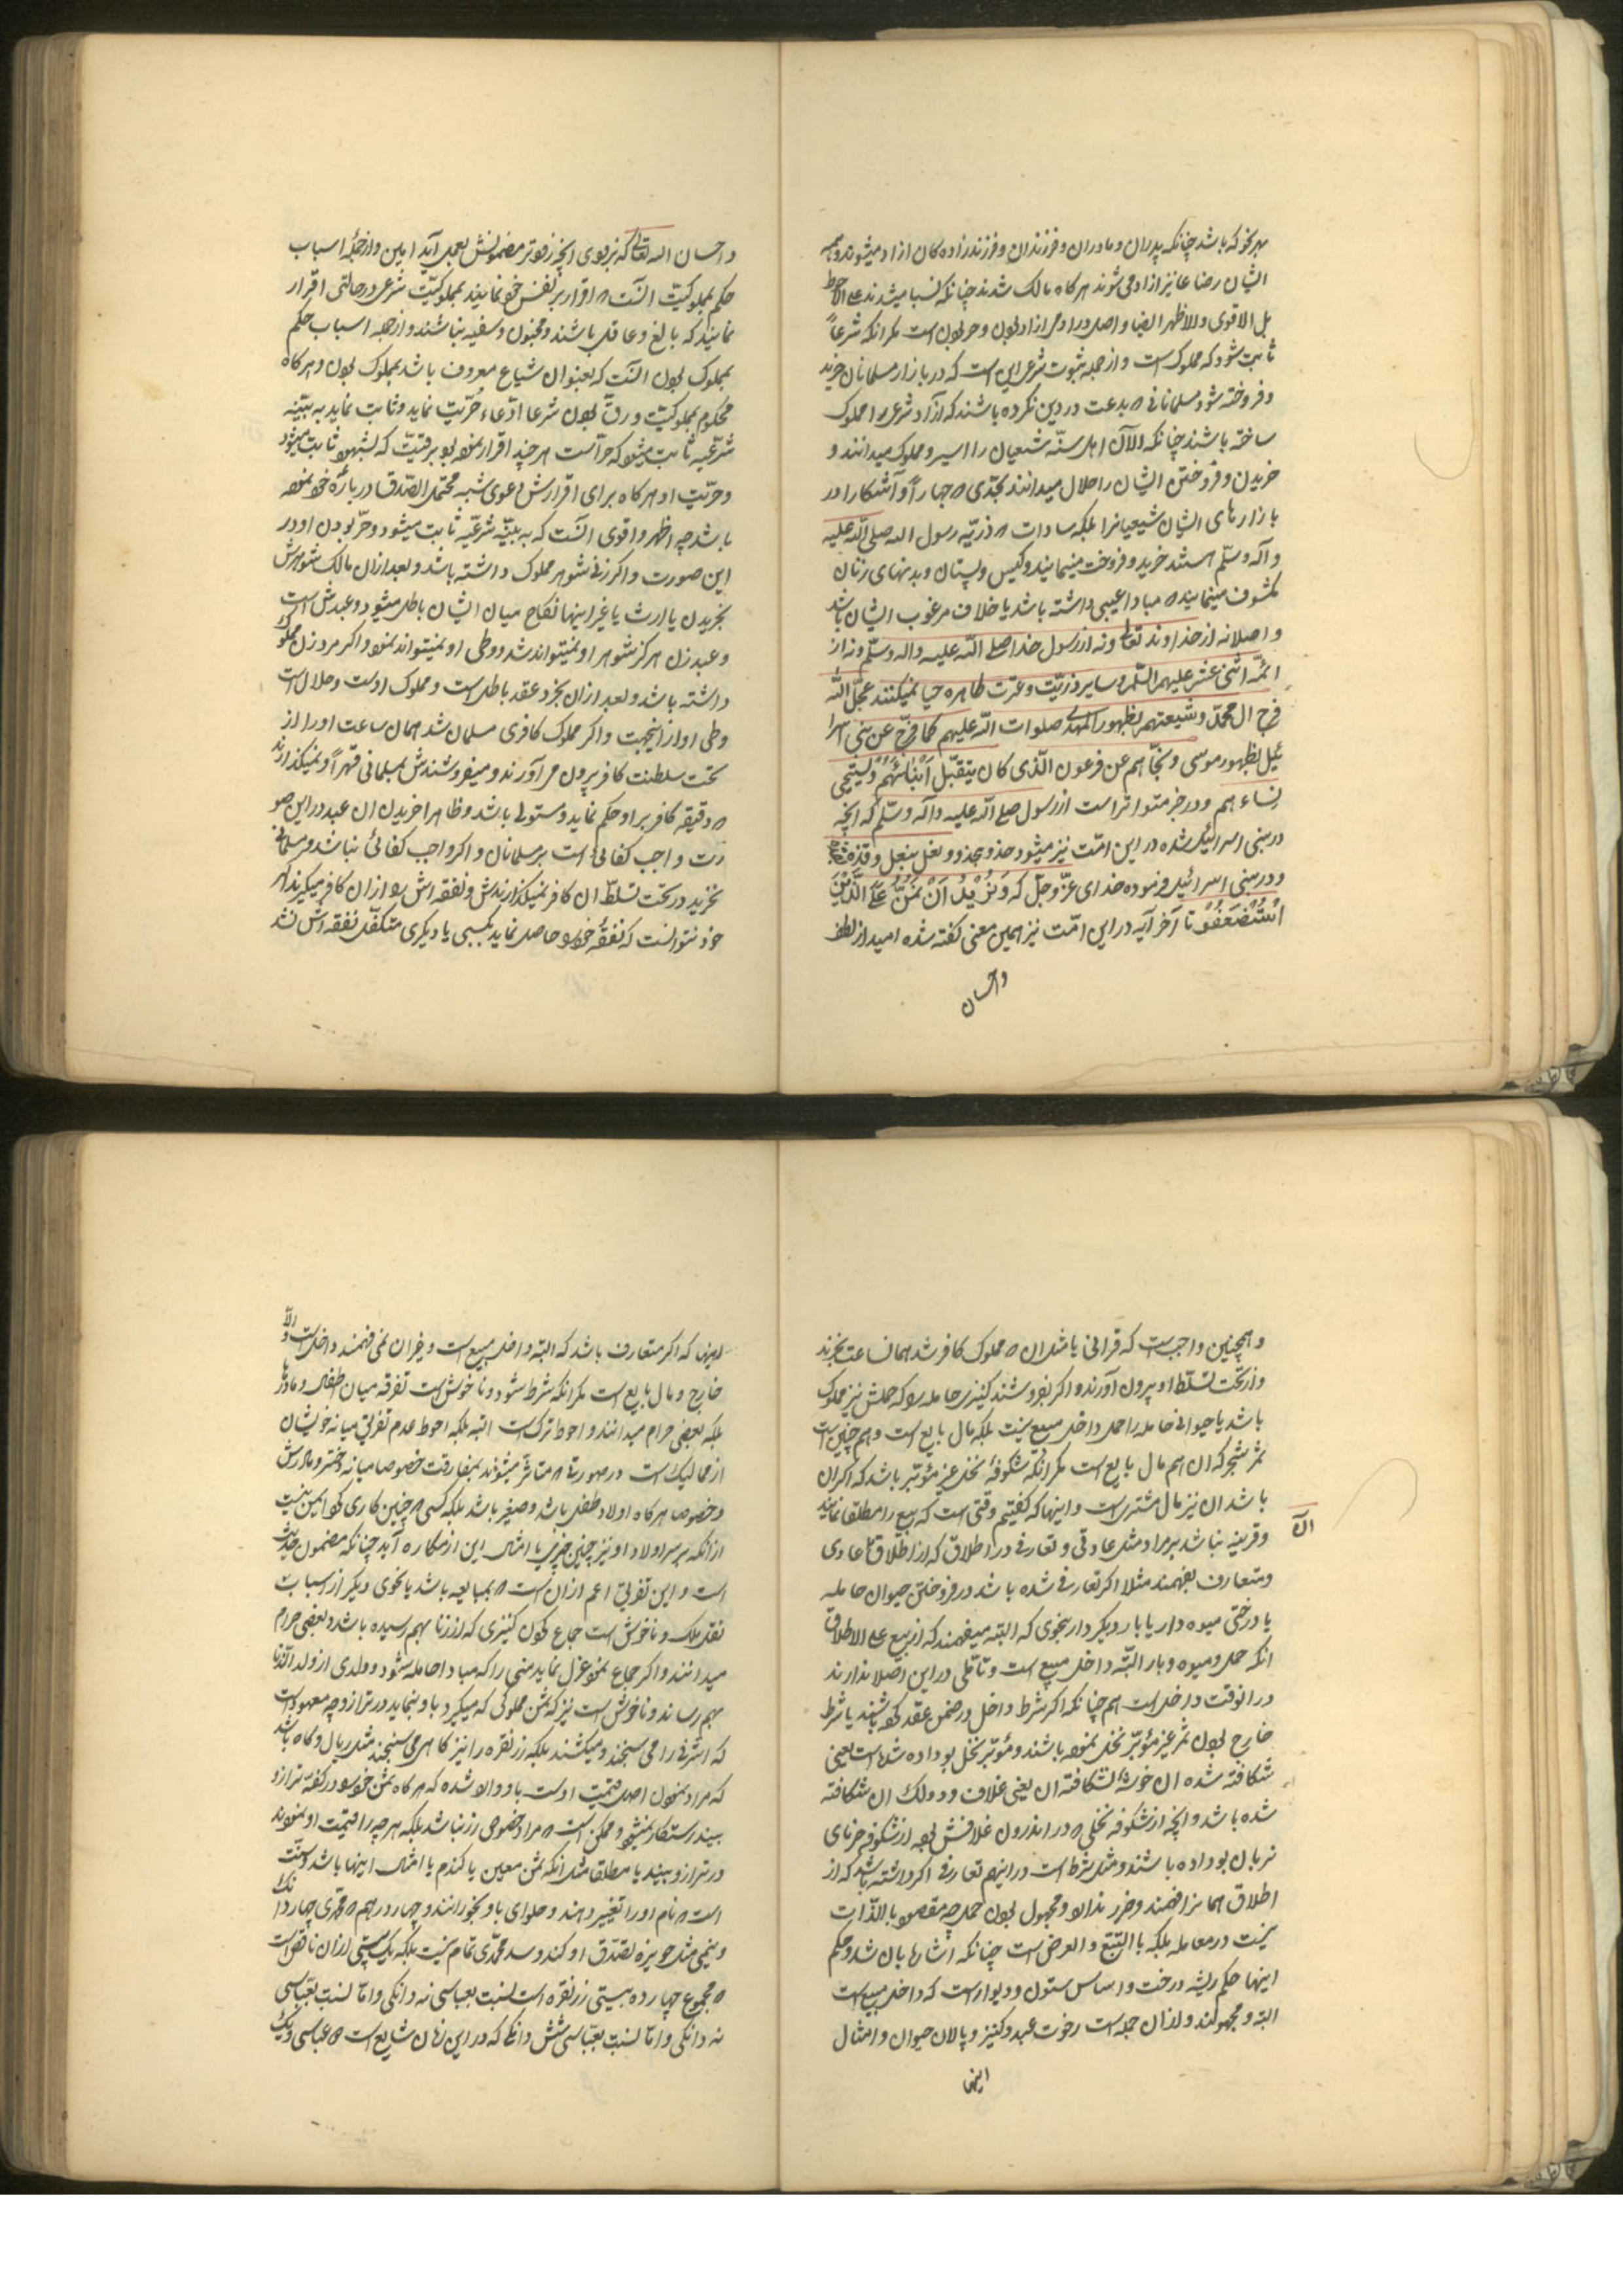 بهر نحو که باشد چنانکه پدران و مادران و فرزندان و فرزند زاده کان ازاد میشوند و همه
ایشان رضاعا نیز ازاد می شوند هر کاه مالک شدند چنانکه نسبا میشدند علی الاحوط
بل الاقوی و الاظهر ایضا و اصل در ادمی ازاد بودن و حر بودن است مکر انکه شرعاً
ثابت شود که مملوک است و از جمله ثبوت شرعی این است که در بازار مسلمانان خرید
و فروخته شود مسلمانانی که بدعت در دین نکرده باشند که آزاد شرعی را مملوک
ساخته باشند چنانکه الآن اهل سنّه شیعیان را اسیر و مملوک میدانند و
خریدن و فروختن ایشان را حلال میدانند بحدّی که جهاراً و آشکارا در
بازارهای ایشان شیعیانرا بلکه سادات که ذریّه رسول الله صلی الله علیه
و آله وسلّم استند خرید و فروخت مینمایند و کیس و پستان و بدنهای زنان
مکشوف مینمایند که مبادا عیبی داشته باشد یا خلاف مرغوب ایشان باشد
و اصلا نه از خداوند تعالی و نه از رسول خدا صلی الله علیه واله وسلّم و نه از
ائمّه اثنی عشر علیهم السّلم و سایر ذریّت و عترت طاهره حیا نمیکنند عجّل الله
فرج ال محمّد و شیعتهم بظهور المهدی صلوات الله علیهم کما فرّج عن بنی اسرا
ئیل بظهور موسی و نجّاهم عن فرعون الّذی کان یتقبّل اَبْنائَهُمْ وَیستحیی
نساءهم و در خبر متواتر است از رسول صلی الله علیه و آله وسلّم که انچه
در بنی اسرائیل شده در این امّت نیز میشود حذو بحذو و نعل بنعل و قذه
و در بنی اسرائیل فرموده خدای عزّ و جلّ که وَنُرِیدُ اَنْ نَمُنَّ عَلَی الَّذِیْنَ
اسْتُضْعِفُوْ تا آخر آیه در این امّت نیز همین معنی کفته شده امید از لطف
واحسان
و احسان الله تعالی که بزودی انچه زودتر مضمونش بعمل آید امین و از جمله اسباب
حکم بمملوکیّت انست که اقرار بر نفس خو نمایند بمملوکیّت شرعی در حالتی اقرار
نمایند که بالغ و عاقل باشند و مجنون و سفیه نباشند و از جمله اسباب حکم
بمملوک بودن انست که بعنوان شیاع معروف باشد بمملوک بودن و هرکاه
محکوم بمملوکیّت و رقّ بودن شرعا ادّعاء حُرّیّت نماید و ثابت نماید به بیّنه
شرعیّه ثابت میشود که حرّ است هر چند اقرار نموده بود برقیّت که شبهه ثابت میشود
و حرّیّت او هرکاه برای اقرارش دعوی شبهه محتمل الصّدق در باره خو نموده
باشد چه اظهر و اقوی انست که به بیّنه شرعیّه ثابت میشود و حرّ بودن او در
این صورت و اکر زنی شوهر مملوک داشته باشد و بعد ازان مالک شوهرش
بخریدن یا ارث یا غیر اینها نکاح میان ایشان باطل میشود و عبدش است
و عبد زن هرکز شوهر او نمیتواند شد و وطی او نمیتواند نمود و اکر مرد زن مملوک
داشته باشد و بعد ازان بخرد عقد باطل است و مملوک اوست و حلال است
وطی او از اینجهت و اکر مملوک کافری مسلمان شد همان ساعت او را از
تحت سلطنت کافر بیرون می آورند و میفروشندش بمسلمانی قهراً و نمیکذارند
که دقیقه کافر بر او حکم نماید و مستولی باشد و ظاهرا خریدن ان عبد در این صو
رت واجب کفائی است بر مسلمانان و اکر واجب کفائی نباشد و مسلمانی
نخرید در تحت تسلّط ان کافر نمیکذارندش و نفقه اش را از ان کافر میکیرند اکر
خود نتوانست که نفقه خو را حاصل نماید بکسبی یا دیکری متکفّل نفقه اش نشد
و همچنین واجب است که قرانی باشد ان که مملوک کافر شد همان ساعت بخرند
و از تحت تسلّط او بیرون آورند و اکر بفروشند کنیزی حامله را که حملش نیز مملوک
باشد یا حیوانی حامله را حمل داخل مبیع نیست بلکه مال بایع است و هم چنین است
ثمر شجر که ان هم مال بایع است مکر انکه شکوفهٔ نخل غیر مؤبّر باشد که اکر ان
باشد ان نیز مال مشتری است و اینها که کفتیم وقتی است که بیع را مطلقا نمایند
الآن
و قرینه نباشد بر مراد مثل عادتی و تعارفی در اطلاق که از اطلاق عادی
و متعارف بفهمند مثلا اکر تعارفی شده باشد در فروختن حیوان حامله
یا درختی میوه دار یا بار دیکر دار بنحوی که البته میفهمند که از بیع علی الاطلاق
انکه حمل و میوه و بار البتّه داخل مبیع است و تأمّلی در این اصلا ندارند
در انوقت داخل است هم چنانکه اکر شرط داخل در ضمن عقد کرده باشند یا شرط
خارج بودن ثمر غیر مؤبّر نخل نموده باشند و مؤبّر نخل بو داده شده است یعنی
شکافته شده ان خوشه شکافته ان یعنی غلاف و دولک ان شکافته
شده باشد و انچه از شکوفه نخلی که در اندرون غلافش بوده از شکوفه خرمای
نر بان بو داده باشند و مثل شرط است در اینهم تعارفی اکر داشته باشد که از
اطلاق همانرا فهمند و ضرر ندارد و مجهول بودن حمل چه مقصود بالذّات
نیست در معامله بلکه بالتّبع و العرض است چنانکه اشاره بان شد و حکم
اینها حکم ریشه درخت و اساس ستون و دیوار است که داخل مبیع است
البتّه و مجهولند و از ان جمله است رخوت عبد و کنیز و پالان حیوان و امثال
اینها
اینها که اکر متعارف باشد که البته داخل مبیع است و غیر ان نمی فهمند داخل است و الّا
خارج و مال بایع است مکر انکه شرط شود و ناخوش است تفرقه میان اطفال و مادرها
بلکه بعضی حرام میدانند و احوط ترک است البته بلکه احوط عدم تفریق میانه خویشان
از ممالیک است در صورتی که متاثّر میشوند بمفارقت خصوصا میانه دختر و مادرش
و خصوص هرکاه اولاد طفل باشد و صغیر باشد بلکه کسی که چنین کاری کرد ایمن نیست
از انکه بر سر اولاد او نیز چنین چیزی یا امثال این از مکاره آید چنانکه مضمون حدیث
است و این تفریق اعم ازان است که بمبایعه باشد یا بنحوی دیکر از اسباب
نقل ملک و ناخوش است جماع کردن کنیزی که از زنا بهم رسیده باشد و بعضی حرام
میدانند و اکر جماع نمود عزل نماید منی را که مبادا حامله شود و ولدی از ولد الزّنا
بهم رساند و ناخوش است نیز که ثمن مملوکی که میکیرد باو بنماید در ترازو چه معهود است
که اشرفی را می سنجند و میکشند بلکه زر نقره را نیز کا هی می سنجند مثل ریال و کاه باشد
که مراد نمودن اصل قیمت اوست باو و وارد شده که هرکاه ثمن خو را در کفّه ترازو
بیند رستکار نمیشود و ممکن است که مراد خصوص زر نباشد بلکه هر چه را قیمت او نمودند
در ترازو ببیند یا مطلقا مثل انکه ثمن معین یا کندم یا امثال اینها باشد و سنّت
است که نام او را تغییر دهند و حلوای باو بخورانند و چهار درهم که محمّدی چهار دانک
و نیمی مثل حویزه تصدّق او کند و سه محمّدی تمام نیست بلکه یک بیستی ازان ناقص است
که مجموع چهارده بیستی زر نقره است نسبت بعباسی نه دانکی و امّا نسبت بعبّاسی
نه دانکی و امّا نسبت بعبّاسی شش دانک که در این زمان شایع است که عباسی و یک